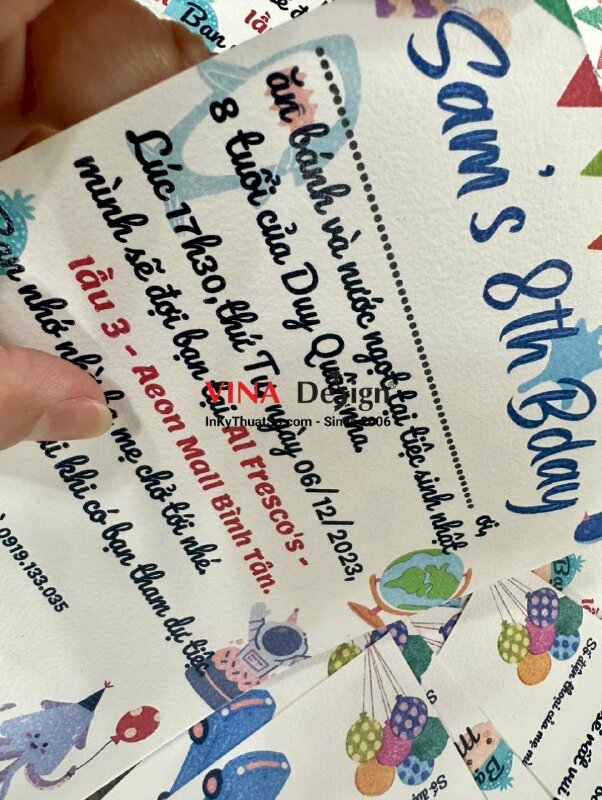 Sam's 8th Bday
ơi,
ăn bánh và nước ngọt tại tiệc sinh nhật
8 tuổi của Duy Quang nha.
Lúc 17h30, thứ Tư ngày 06/12/2023,
mình sẽ đợi bạn tại Al Fresco's -
lầu 3 - Aeon Mall Bình Tân.
Bạn nhớ nhờ ba mẹ chở tới nhé.
vui khi có bạn tham dự tiệc
0919.133.035
VINA Design
InKyThuatSo.com - Since 2006
Số điện thoại của mẹ mì
Số điện
Bạ
M
lầ
vui
Bạn
lầu